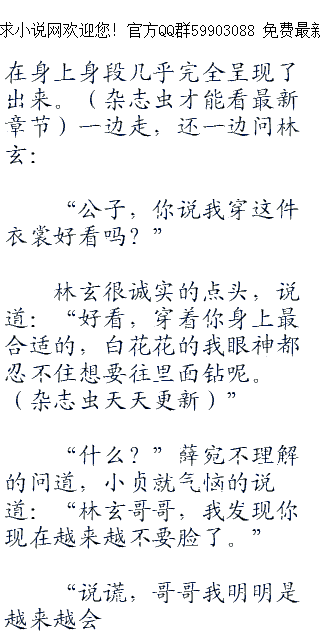 求小说网欢迎您！官方QQ群59903088 免费最新
在身上身段几乎完全呈现了
出来。（杂志虫才能看最新
章节）一边走，还一边问林
玄：
“公子，你说我穿这件
衣裳好看吗？”
林玄很诚实的点头，说
道：“好看，穿着你身上最
合适的，白花花的我眼神都
忍不住想要往里面钻呢。
（杂志虫天天更新）”
“什么？”薛宛不理解
的问道，小贞就气恼的说
道：“林玄哥哥，我发现你
现在越来越不要脸了。”
“说谎，哥哥我明明是
越来越会